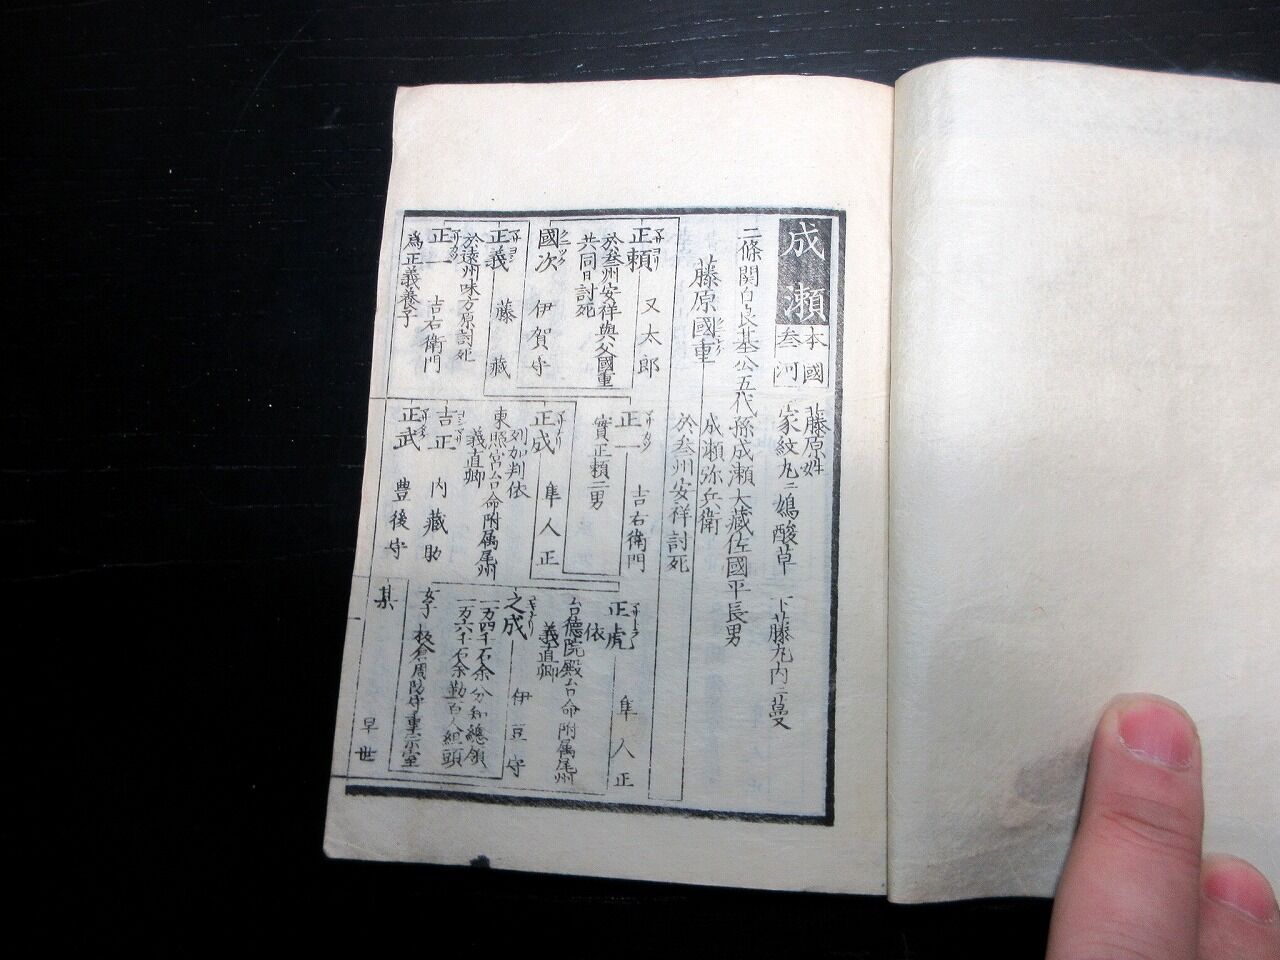 成瀬
本國
叁河
藤原姓
家紋丸ニ鳩酸草
下藤丸内ニ
二條関白良基公五代孫成瀬大藏佐國平長男
藤原國重
成瀬弥兵衛
於叁州安祥討死
正頼 又太郎
於叁州安祥與父國重
共同日討死
國次 伊賀守
正義 藤藏
於遠州味方原討死
正一 吉右衛門
為正義養子
正一 吉右衛門
實正頼二男
正成 隼人正
列加判依
東照宮台命附属尾州
義直卿
吉正 内藏助
正武 豊後守
正虎 隼人正
依
台德院殿台命附属尾州
義直卿
之成 伊豆守
一万四千石余分知總領
一万六千石余勤百人組頭
女子 板倉周防守重宗室
某 早世